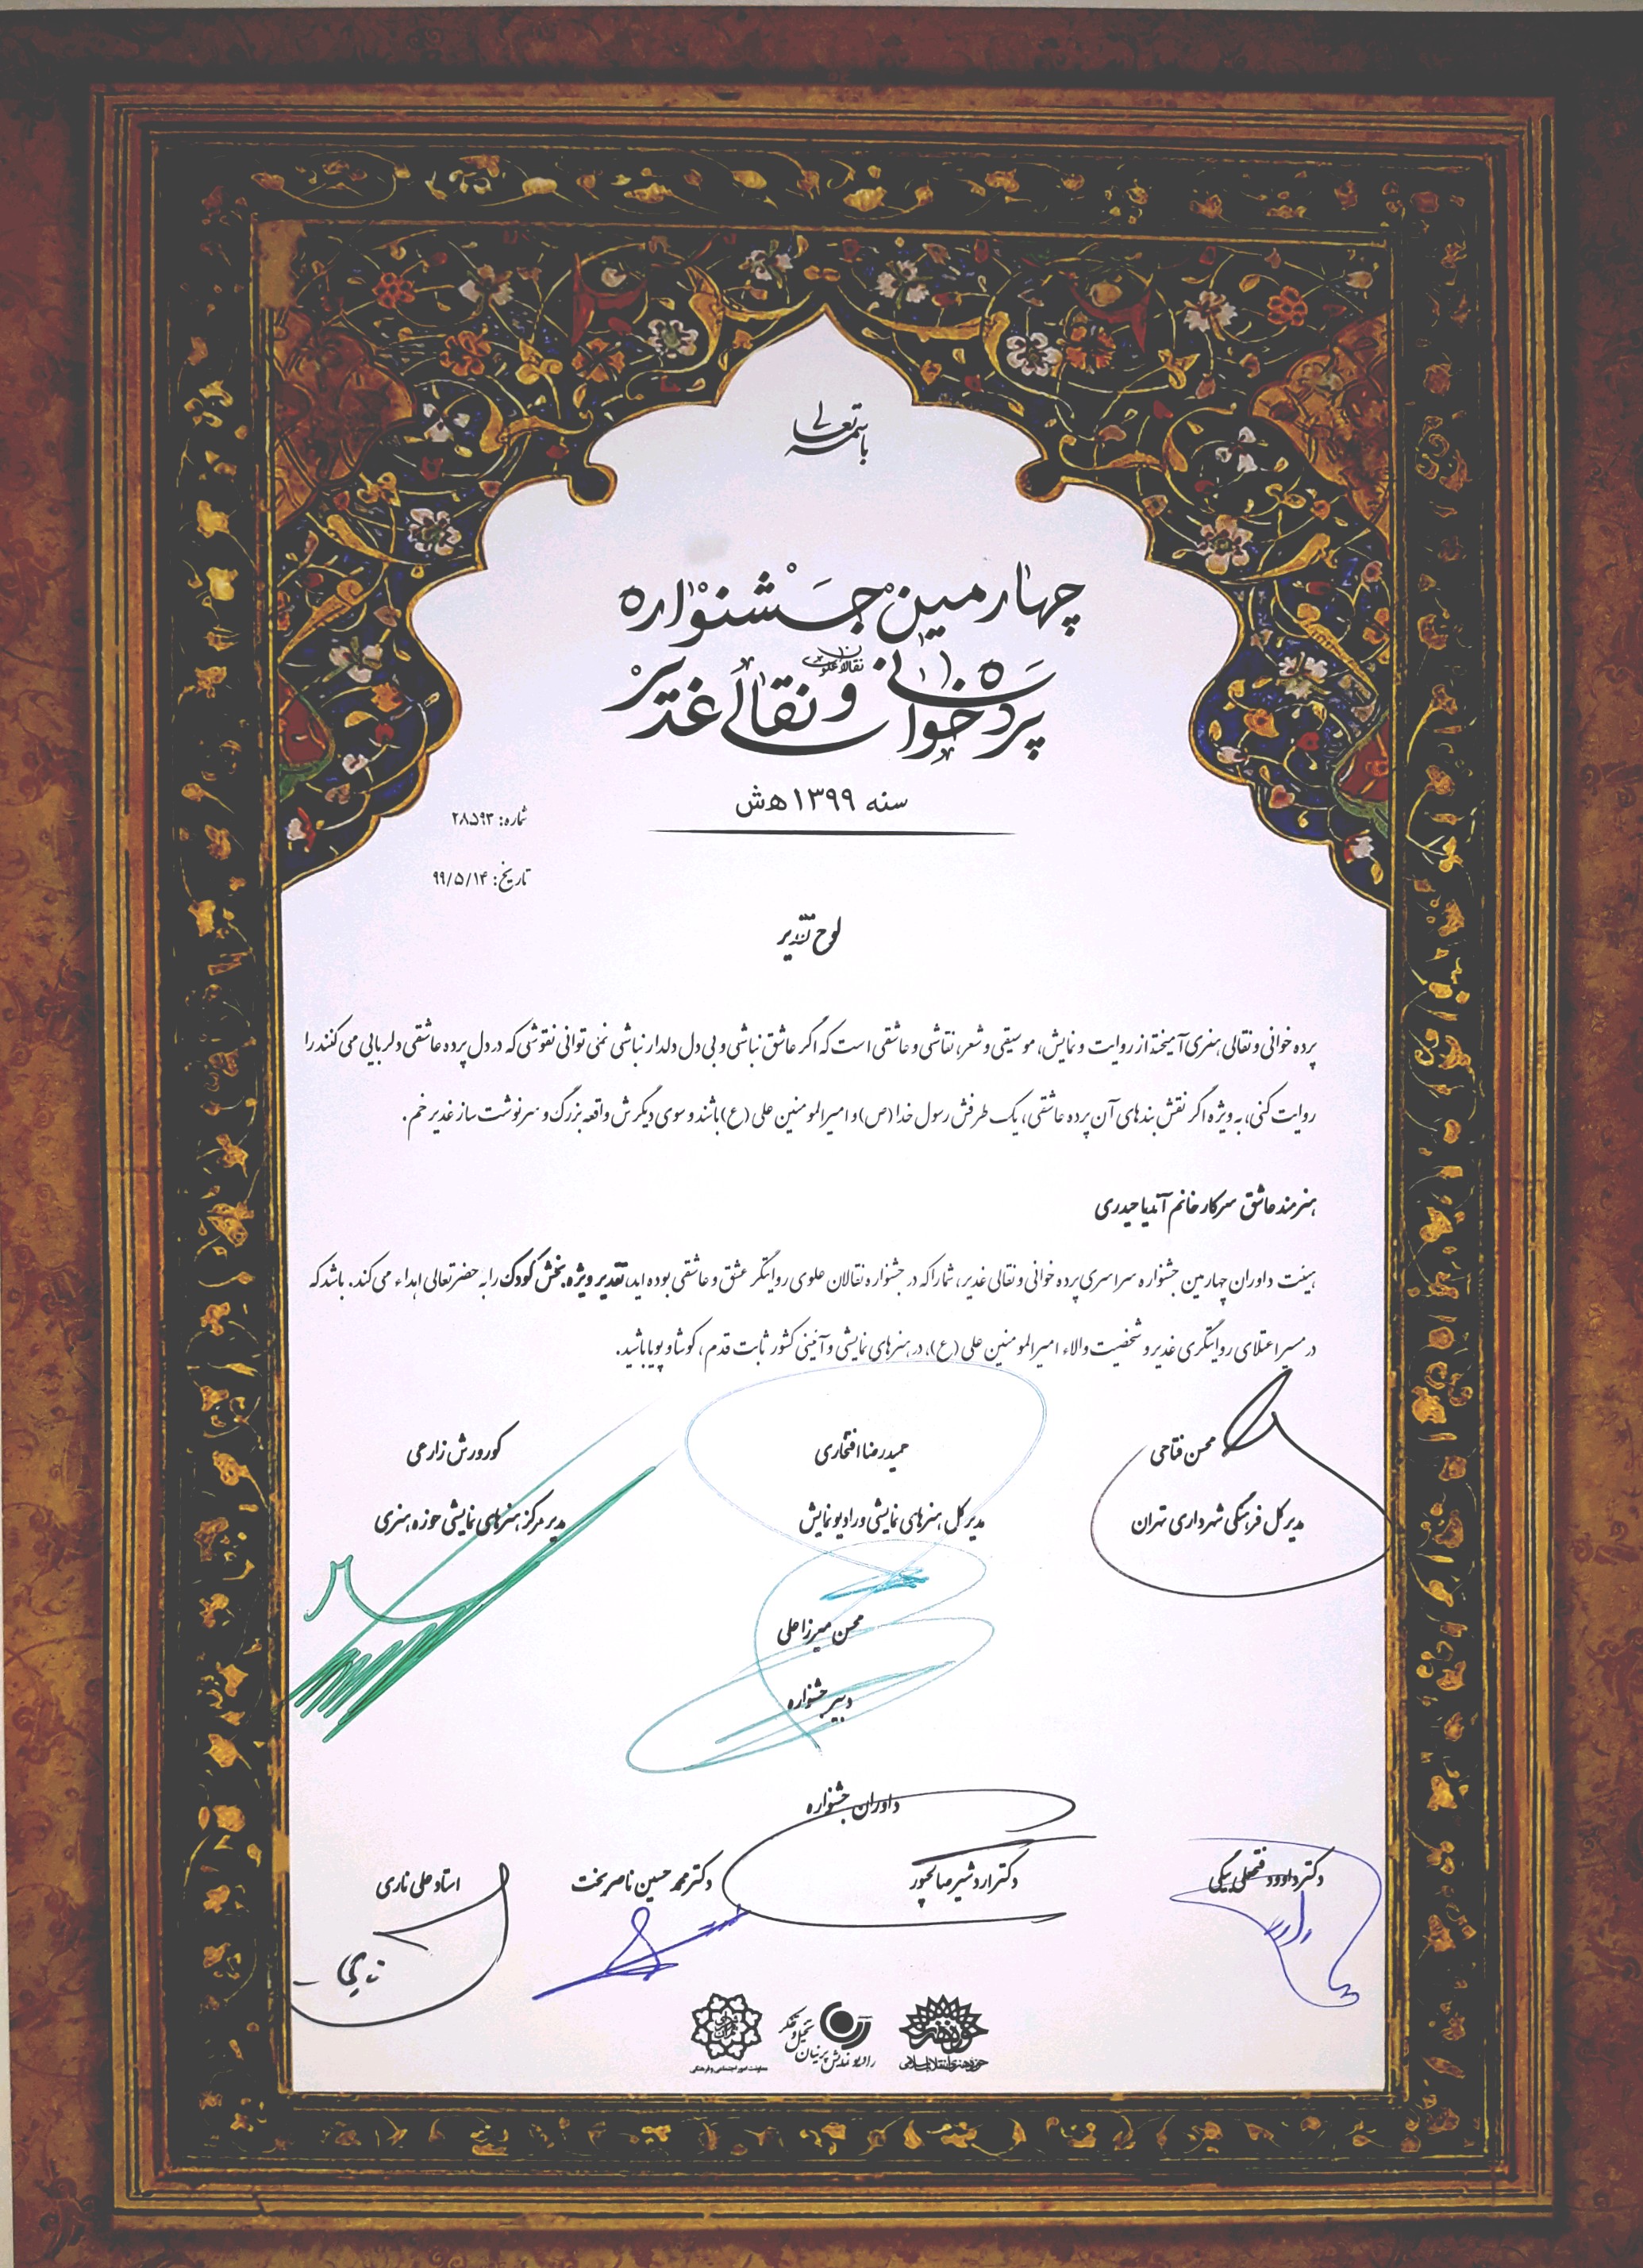 باسمه تعالی
چهارمین جشنواره
پرده‌خوانی و نقالی غدیر
نقالان علوی
سنه ۱۳۹۹ ه‍ش
شماره: ۲۸۵۹۳
تاریخ: ۹۹/۵/۱۴
لوح تقدیر
پرده خوانی و نقالی هنری آمیخته از روایت و نمایش، موسیقی و شعر، نقاشی و عاشقی است که اگر عاشق نباشی و بی دل دلدار نباشی نمی توانی نقوشی که در دل پرده عاشقی دلربایی می کنند را
روایت کنی، به ویژه اگر نقش بندهای آن پرده عاشقی، یک طرفش رسول خدا (ص) و امیرالمومنین علی (ع) باشند و سوی دیگرش واقعه بزرگ و سرنوشت ساز غدیر خم.
هنرمند عاشق سرکار خانم آندیا حیدری
هیئت داوران چهارمین جشنواره سراسری پرده خوانی و نقالی غدیر، شما را که در جشنواره نقالان علوی روایتگر عشق و عاشقی بوده اید، تقدیر ویژه بخش کودک را به حضرتعالی اهداء می کند. باشد که
در مسیر اعتلای روایتگری غدیر و شخصیت والاء امیرالمومنین علی (ع)، در هنرهای نمایشی و آئینی کشور ثابت قدم، کوشا و پویا باشید.
محسن فتاحی حمیدرضا افتخاری کوروش زارعی
مدیر کل فرهنگی شهرداری تهران مدیر کل هنرهای نمایشی و رادیو نمایش مدیر مرکز هنرهای نمایشی حوزه هنری
محسن میرزاعلی
دبیر جشنواره
داوران جشنواره
دکتر داوود فتحعلی بیگی دکتر اردشیر صالحپور دکتر محمد حسین ناصربخت استاد علی ناری
حوزه هنری انقلاب اسلامی
رادیو نمایش پرنیان تخیل و تفکر
معاونت امور اجتماعی و فرهنگی